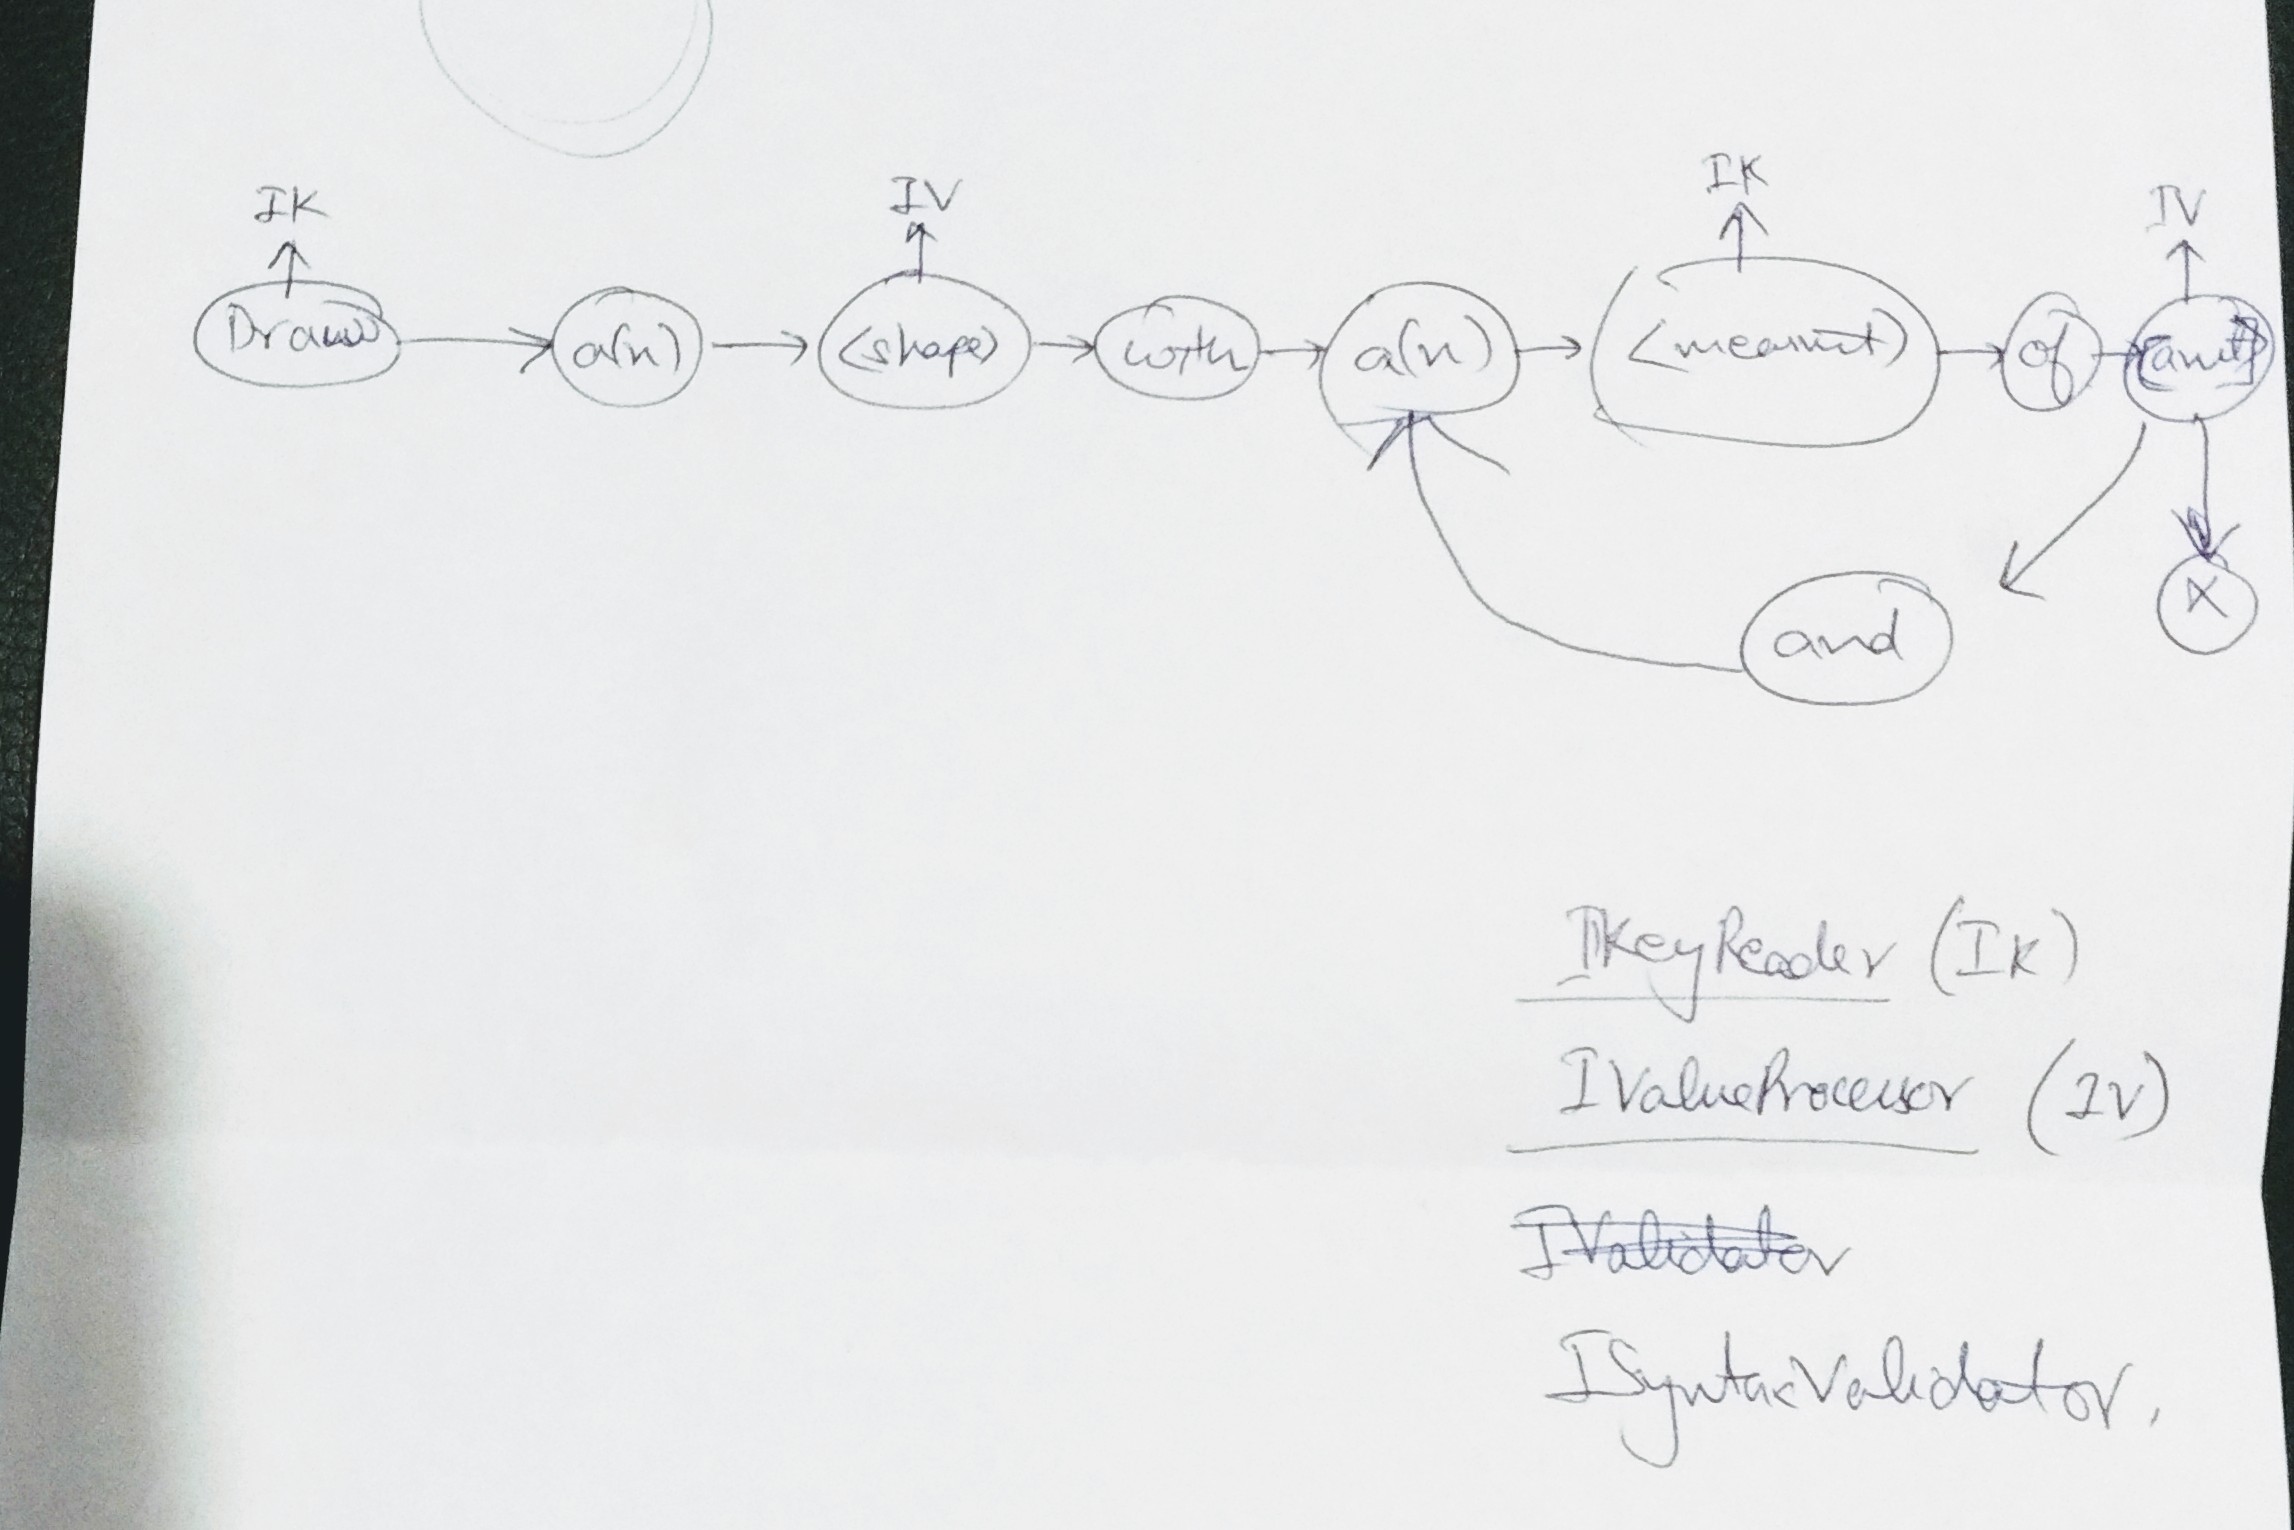 IK IV IK IV
Draw a(n) <shape> with a(n) of
and X
IKeyReader (IK)
IValueProcessor (IV)
IValidator
ISyntaxValidator.